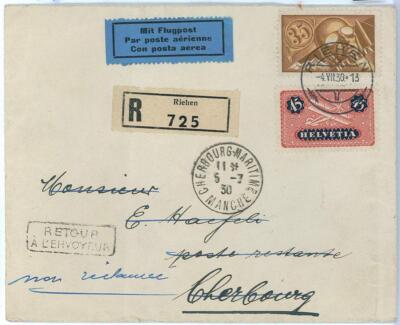 Mit Flugpost
Par poste aérienne
Con posta aerea
35
RIEHEN
-4.VII.30-13
R
Riehen
725
45
HELVETIA
CHERBOURG-MARITIME
11 H
5 -7
30
MANCHE
Monsieur
E. Haefeli
RETOUR
À L'ENVOYEUR
poste restante
non réclamée
Cherbourg